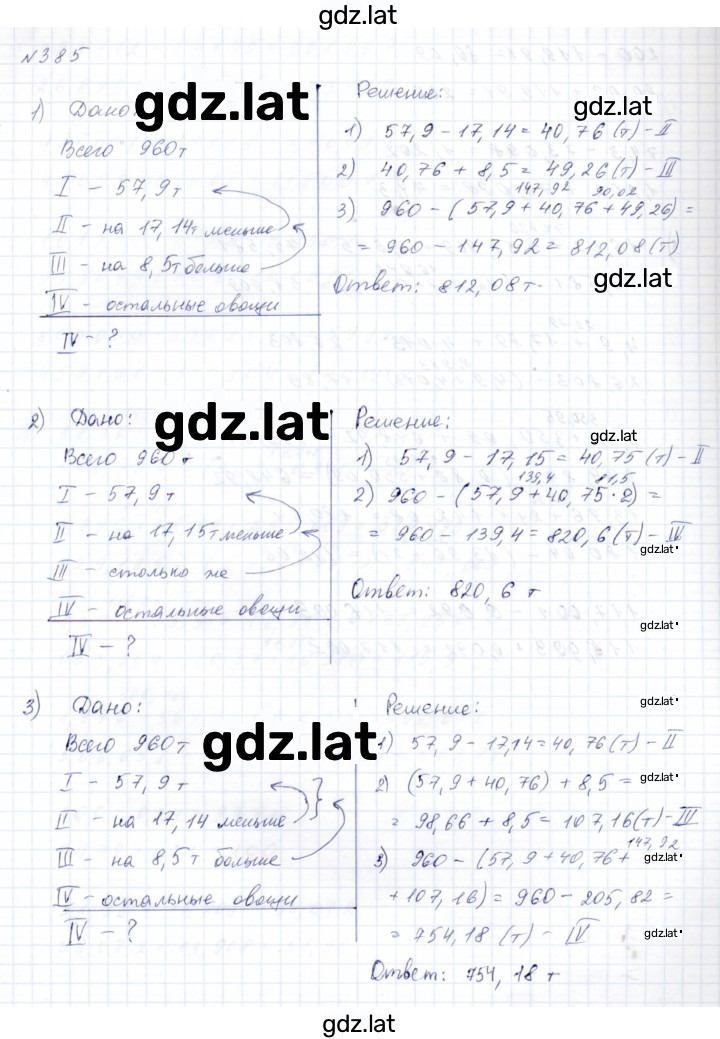 gdz.lat
№385
1) Дано:
gdz.lat
Всего 960т
I - 57,9т
II - на 17,14т меньше
III - на 8,5т больше
IV - остальные овощи
IV - ?
Решение:
gdz.lat
1) 57,9 - 17,14 = 40,76 (т) - II
2) 40,76 + 8,5 = 49,26 (т) - III
147,92 90,02
3) 960 - (57,9 + 40,76 + 49,26) =
= 960 - 147,92 = 812,08 (т)
Ответ: 812,08 т.
gdz.lat
2) Дано:
gdz.lat
Всего 960 т
I - 57,9 т
II - на 17,15т меньше
III - столько же
IV - остальные овощи
IV - ?
Решение:
gdz.lat
1) 57,9 - 17,15 = 40,75 (т) - II
139,4 81,5
2) 960 - (57,9 + 40,75 · 2) =
= 960 - 139,4 = 820,6 (т) - IV
gdz.lat
Ответ: 820,6 т
gdz.lat
3) Дано:
Всего 960т
gdz.lat
I - 57,9 т
II - на 17,14 меньше
III - на 8,5т больше
IV - остальные овощи
IV - ?
Решение:
gdz.lat
1) 57,9 - 17,14 = 40,76 (т) - II
2) (57,9 + 40,76) + 8,5 =
gdz.lat
= 98,66 + 8,5 = 107,16 (т) - III
147,92
3) 960 - (57,9 + 40,76 +
gdz.lat
+ 107,16) = 960 - 205,82 =
= 754,18 (т) - IV
gdz.lat
Ответ: 754,18 т
gdz.lat